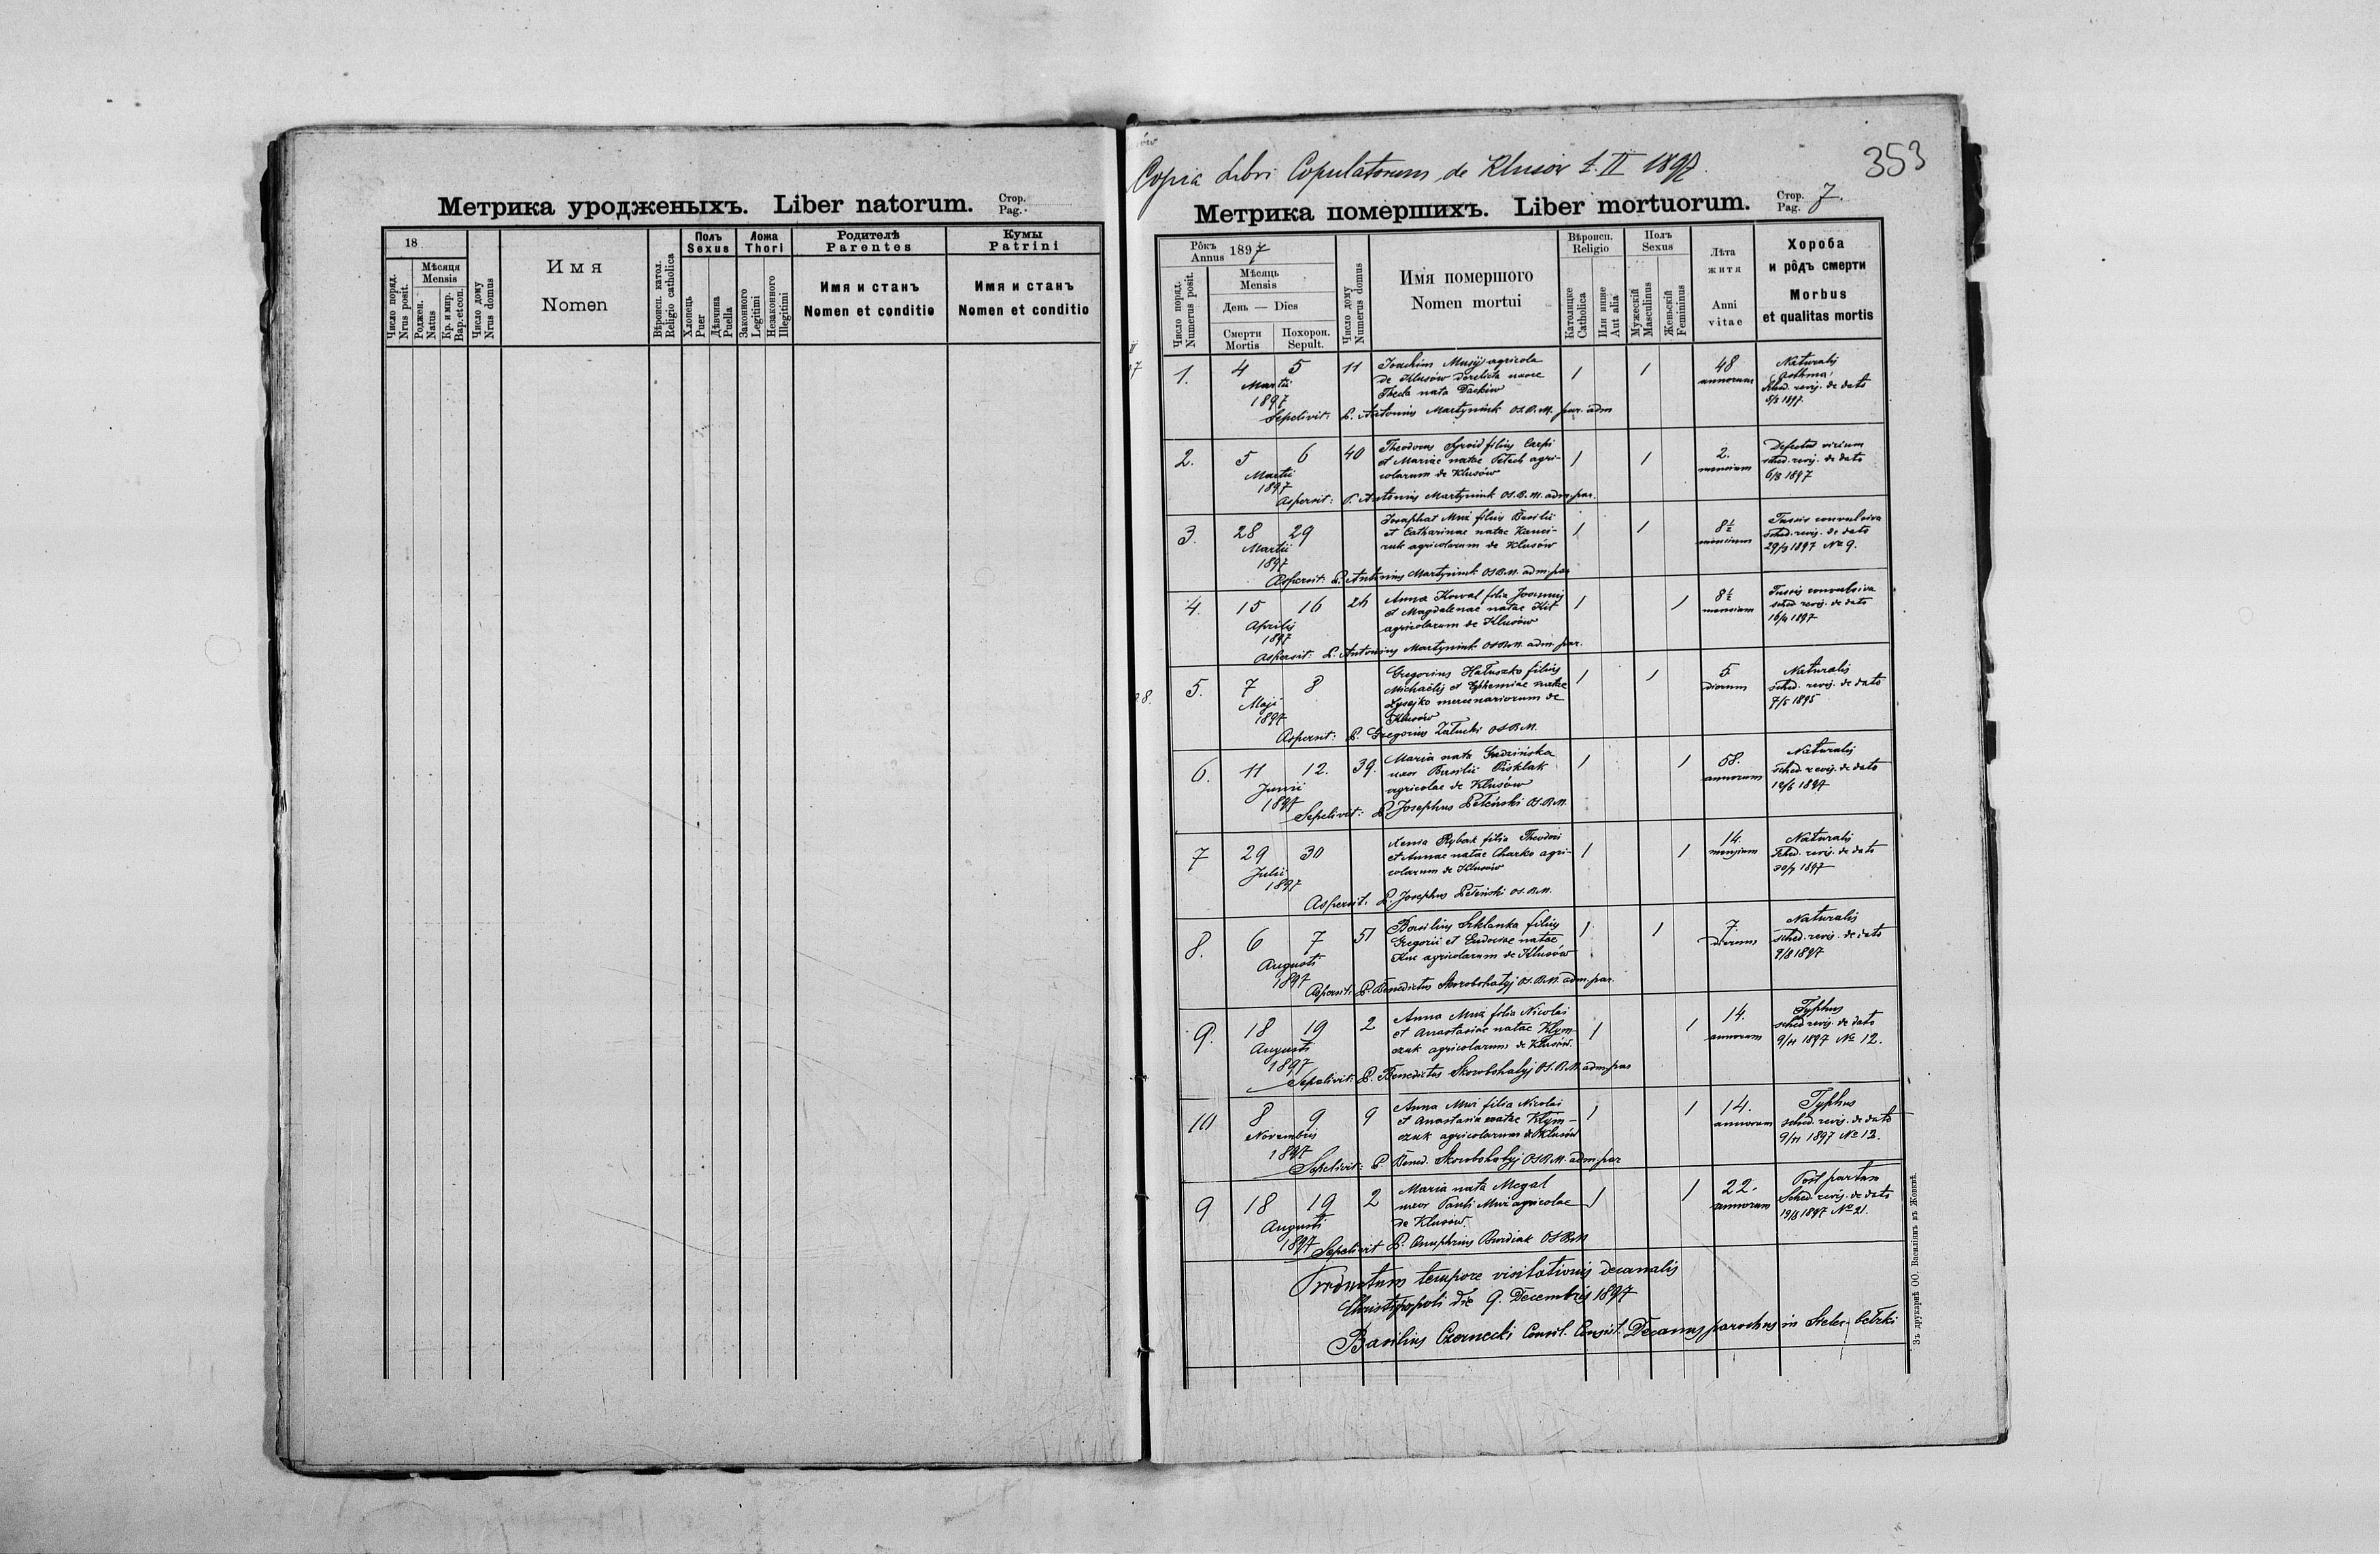 Метрика уродженыхъ. Liber natorum. Стор. Pag.
18
Число поряд. Nrus posit.
Мѣсяця Mensis
Роджен. Natus
Кр. и мир. Bap. et con.
Число дому Nrus domus
Имя
Nomen
Вѣроисп. катол. Religio catholica
Полъ Sexus
Хлопець Puer
Дѣвчина Puella
Ложа Thori
Законного Legitimi
Незаконного Illegitimi
Родителѣ
Parentes
Имя и станъ
Nomen et conditio
Кумы
Patrini
Имя и станъ
Nomen et conditio
353
Copia Libri Copulatorum de Klusów t. II 1897.
Метрика помершихъ. Liber mortuorum. Стор. Pag. 7.
Рôкъ Annus 1897
Число поряд. Numerus posit.
Мѣсяць
Mensis
День — Dies
Смерти Mortis
Похорон. Sepult.
Число дому Numerus domus
Имя помершого
Nomen mortui
Вѣроисп. Religio
Католицке Catholica
Или инше Aut alia
Полъ Sexus
Мужескій Masculinus
Женьскій Femininus
Лѣта
житя
Anni
vitae
Хороба
и рôдъ смерти
Morbus
et qualitas mortis
1. 4 5 11 Joachim Musij agricola 1 1 48 Naturalis
Martii de Klusów derelicta uxore annorum asthma
1897 Thecla nata Dackiw sched. revis. de dato
5/3 1897.
Sepelivit: P. Antonius Martyniuk OSBM. par. adm
2. 5 6 40 Theodorus filius Carpi 1 1 2. Defectus virium
Martii et Mariae natae Petech agri- mensium sched. revis. de dato
1897 colarum de Klusów 6/3 1897
Aspersit: P. Antonius Martyniuk OSBM. adm. par.
3. 28 29 Josaphat Mwi filius Basilii 1 1 8½ Tussis convulsiva
Martii et Catharinae natae Kanci- mensium sched. revis. de dato
1897 ruk agricolarum de Klusów 29/3 1897 No 9.
Aspersit: P. Antonius Martyniuk OSBM. adm. par
4. 15 16 24 Anna Kowal filia Joannis 1 1 8½ Tussis convulsiva
Aprilis et Magdalenae natae Kit mensium sched. revis. de dato
1897 agricolarum de Klusów 16/4 1897
Aspersit: P. Antonius Martyniuk OSBM. adm. par.
5. 7 8 Gregorius Hałuszko filius 1 1 5 Naturalis
Maji Michaëlis et Ephemiae natae dierum sched. revis. de dato
1897 Łysejko mercenariorum de 7/5 1895
Klusów
Aspersit: P. Gregorius Załucki OSBM.
6. 11 12. 39. Maria nata 1 1 58. Naturalis
Junii uxor Basilii Pisklak annorum sched. revis. de dato
1897 agricolae de Klusów 12/6 1897
Sepelivit: P. Josephus OSBM.
7 29 30 Anna Rybak filia Theodori 1 1 14. Naturalis
Julii et Annae natae Charko agri- mensium sched. revis. de dato
1897 colarum de Klusów 30/7 1897
Aspersit. P. Josephus OSBM.
8. 6 7 51 Basilius Szklanka filius 1 1 7. Naturalis
Augusti Gregorii et Eudociae natae dierum sched. revis. de dato
1897 agricolarum de Klusów 9/8 1897
Aspersit: P. Benedictus Skorobohatyj OSBM. adm. par.
9. 18 19 2 Anna Mwi filia Nicolai 1 1 14. Typhus
Augusti et Anastasiae natae Klym- annorum sched revis. de dato
1897 czuk agricolarum de Klusów. 9/11 1897 No 12.
Sepelivit: P. Benedictus Skorobohatyj OSBM. adm. par
10 8 9 9 Anna Mwi filia Nicolai 1 1 14. Typhus
Novembris et Anastasia natae Klym- annorum sched. revis. de dato
1897 czuk agricolarum de Klusów 9/11 1897 No 12.
Sepelivit: P. Bened. Skorobohatyj OSBM. adm. par
9 18 19 2 Maria nata Megal 1 1 22. Post partum
Augusti uxor Pauli Mwi agricolae annorum Sched. revis. de dato
1897 de Klusów. 19/8 1897 No 21.
Sepelivit P. Onuphrius Burdiak OSBM
Productum tempore visitationis decanalis
Christipopoli die 9. Decembris 1897
Basilius Czernecki Consil. Consist. Decanus parochus in Sielec bełzki
Зъ друкарнѣ ОО. Василіянъ въ Жовквѣ.